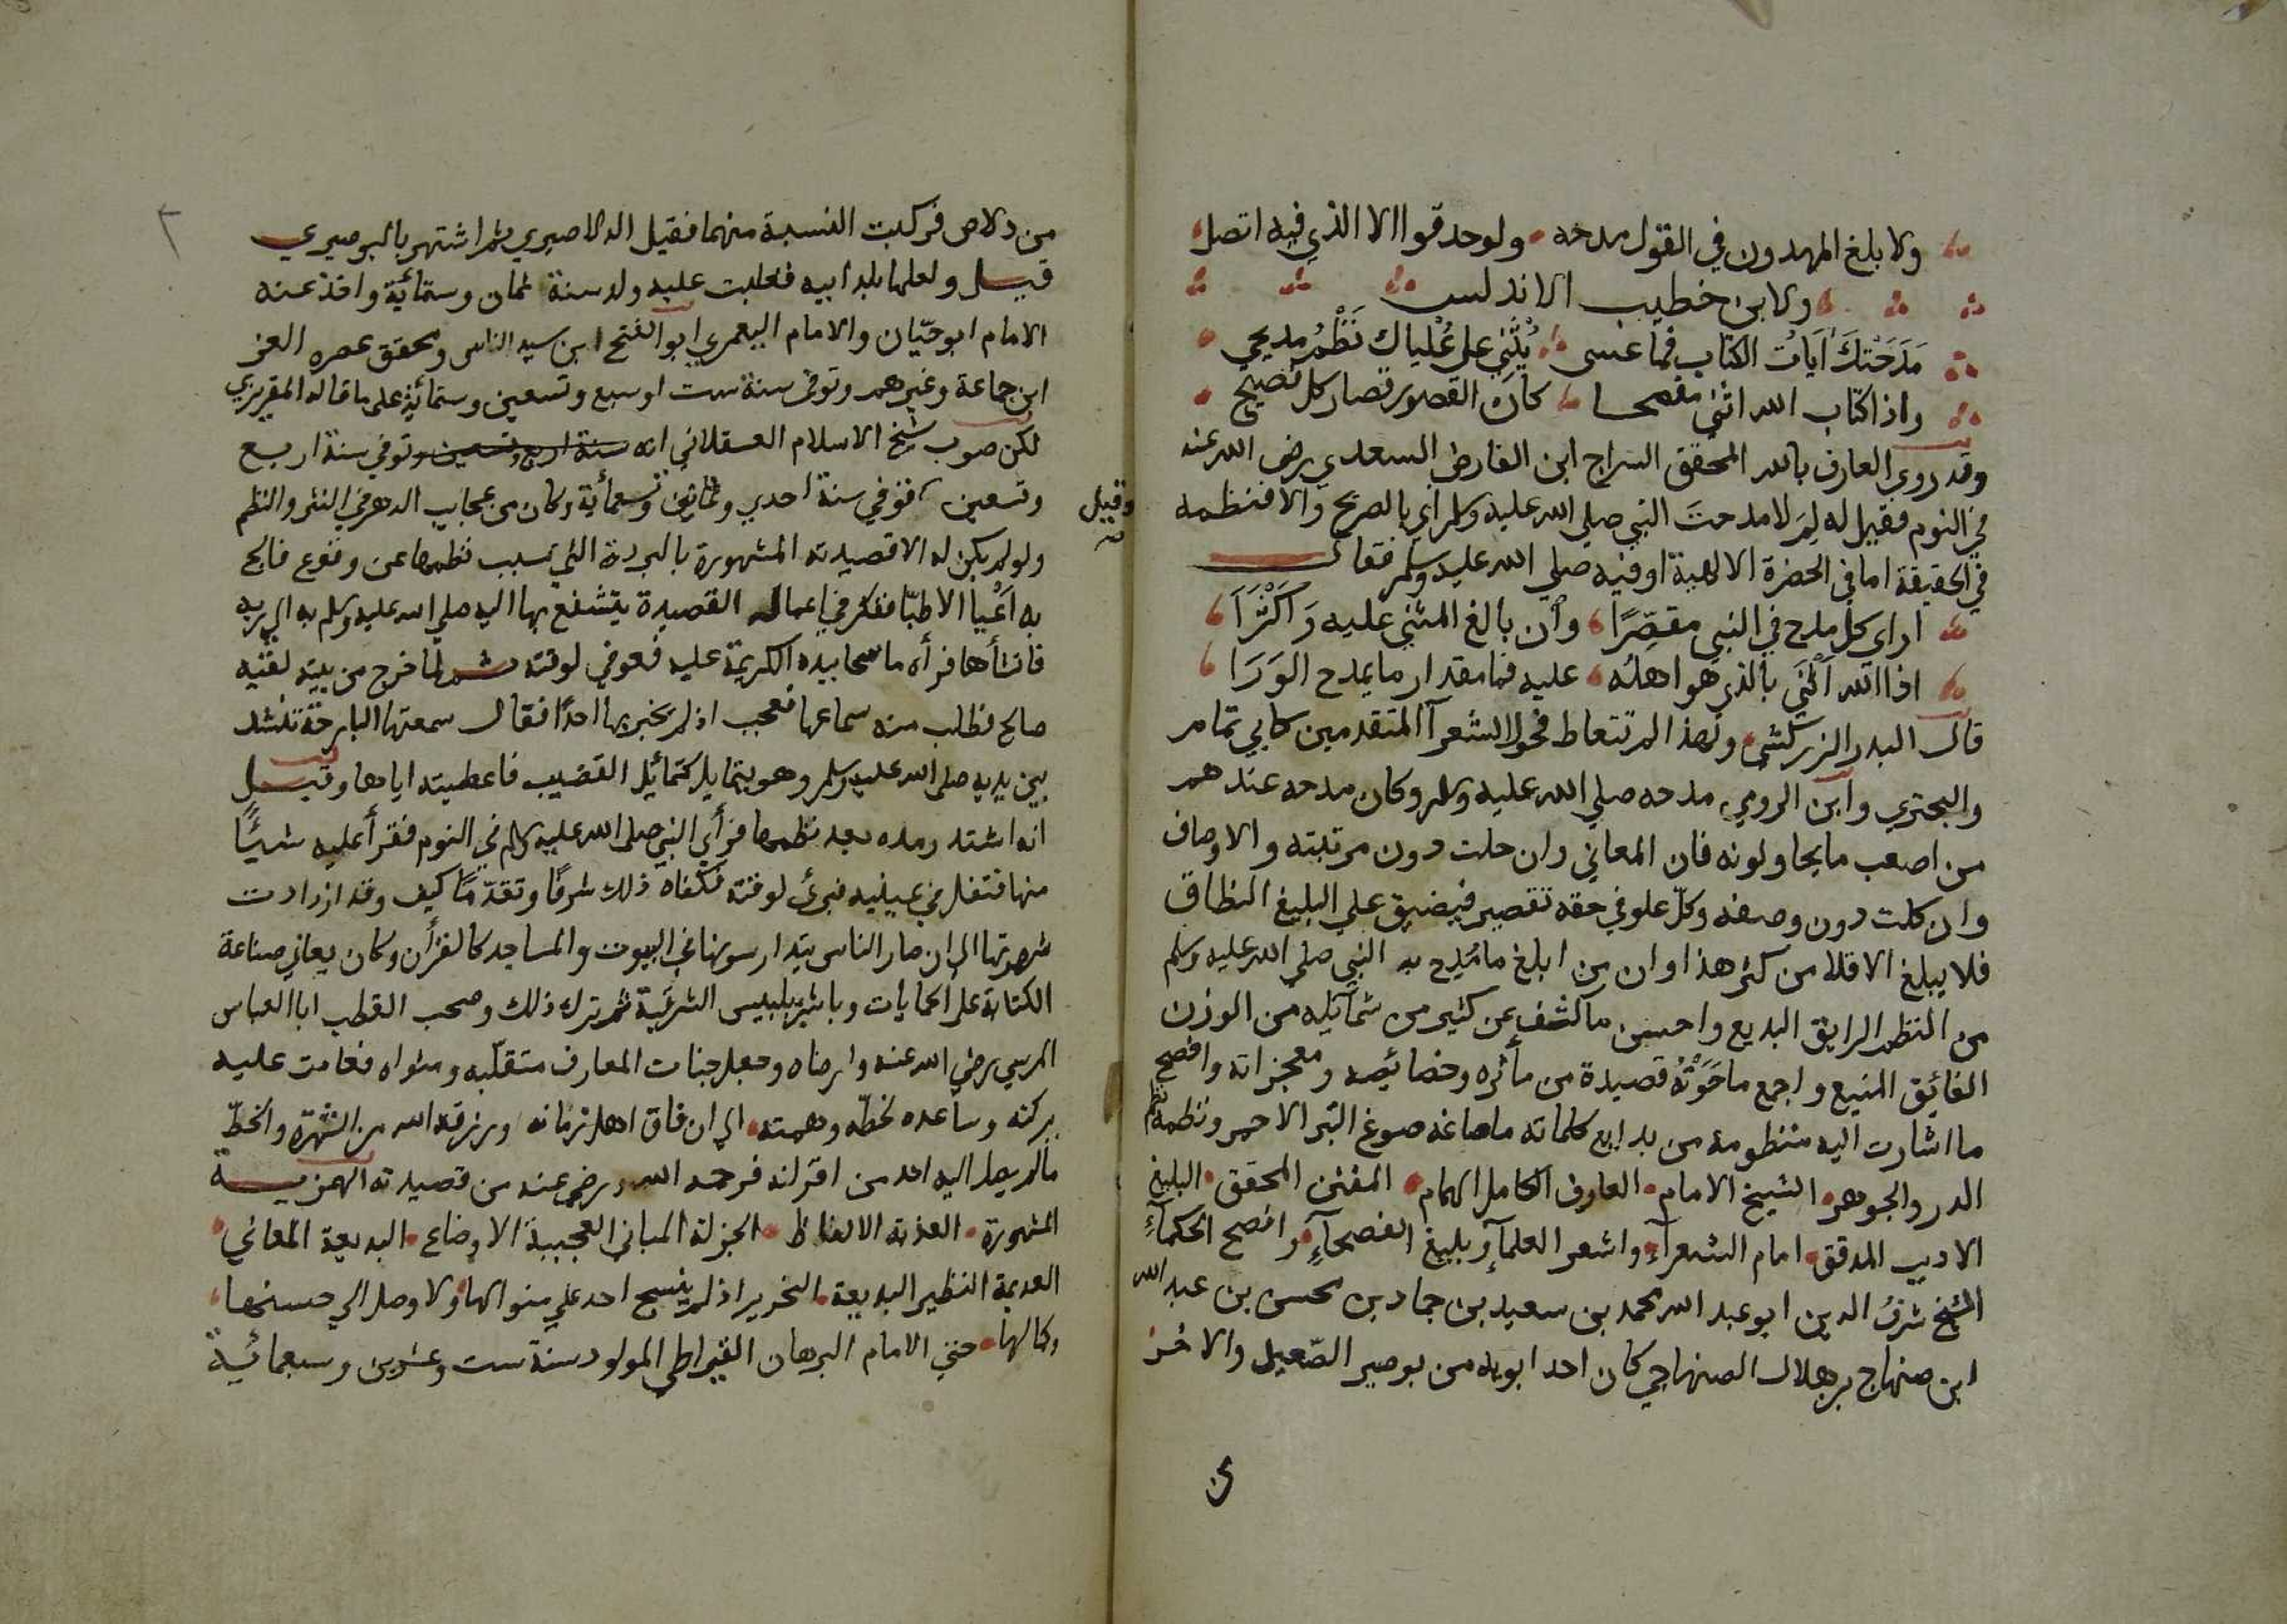 ولا بلغ المهدون في القول مدحه ولو حدقوا الا الذي فيه اتصل
ولابن خطيب الاندلس
مَدَحَتْكَ اَيَاتُ الكتاب فما عسى يُثْنِي على عُلياك نَظْمُ مديحي
واذا كتاب الله اثنى مفصحا كان القصور قصار كل فصيح
وقد روي العارف بالله المحقق السراج ابن الفارض السعدي رضي الله عنه
في النوم فقيل له لِمَ لا مدحتَ النبي صلي الله عليه وسلم اي بالصريح والا فنظمه
في الحقيقة اما في الحضرة الالهية او فيه صلي الله عليه وسلم فقال
اراى كل مدح في النبي مقصِّرًا وأن بالغ المثني عليه وَاَكْثَرَا
اذا الله اَثْنَي بالذي هو اهلُه عليه فما مقدار ما يمدح الوَرَا
قال البدر الزركشي ولهذا لم تتعاط فحول الشعرآ المتقدمين كابي تمام
والبحتري وابن الرومي مدحه صلي الله عليه وسلم وكان مدحه عندهم
من اصعب ما يحاولونه فان المعاني وان جلت دون مرتبته والاوصاف
وان كلت دون وصفه وكلّ علو في حقه تقصير فيضيق علي البليغ النطاق
فلا يبلغ الا قلا من كثر هذا وان من ابلغ ما مُدِح به النبي صلي الله عليه وسلم
من النظم الرايق البديع واحسن ما كشف عن كثير من شمآئله من الوزن
الفائق المنيع واجمع ما حَوَتْهُ قصيدة من مأثره وخصائصه ومعجزاته وافصح
ما اشارت اليه منظومة من بدايع كلماته ما صاغه صوغ التبر الاحمر ونظمه نظم
الدر والجوهر الشيخ الامام العارف الكامل الهمام المفنن المحقق البليغ
الاديب المدقق امام الشعرآءِ واشعر العلمآءِ وبليغ الفصحآءِ وافصح الحكمآءِ
الشيخ شرفُ الدين ابو عبد الله محمد بن سعيد بن حماد بن محسن بن عبد الله
ابن صنهاج بن هلال الصنهاجي كان احد ابويه من بوصير الصّعيد والاخر
من
من دلاص فركبت النسبة منهما فقيل الدلاصيري ثم اشتهر بالبوصيري
قيل ولعلها بلد ابيه فغلبت عليه ولد سنة ثمان وستمائة واخذ عنه
الامام ابو حيّان والامام اليعمري ابو الفتح ابن سيد الناس ومحقق عصره العز
ابن جماعة وغيرهم وتوفي سنة ست او سبع وتسعين وستمائة علي ما قاله المقريزي
لكن صوب شيخ الاسلام العسقلاني انه سنة اربع وتسعين وتوفي سنة اربع
وقيل
وتسعين فتوفي سنة احدي وثمانين وكان من عجايب الدهر في النثر والنظم
ولو لم يكن له الا قصيدته المشهورة بالبردة التي تسبب نظمها عن وقوع فالج
به اَعْيا الاطبّا ففكر في اعمال القصيدة يتشفع بها اليه صلي الله عليه وسلم به الي ربه
فانشأها فرأه ماسحا بيده الكريمة عليه فعوفي لوقته ثم لما خرج من بيته لقيه
صالح فطلب منه سماعها فعجب اذ لم يخبر بها احدًا فقال سمعتها البارحة تنشد
بين يديه صلي الله عليه وسلم وهو يتمايل كتمائيل القضيب فاعطيته اياها وقيل
انه اشتد رمده بعد نظمها فرأي النبي صلي الله عليه وسلم في النوم فقرأ عليه شيئًا
منها فتفل في عينيه فبرئ لوقته فكفاه ذلك شرفًا وتقدّمًا كيف وقد ازدادت
شهرتها الي ان صار الناس يتدارسونها في البيوت والمساجد كالقرأن وكان يعاني صناعة
الكتابة علي الجبايات وباشر ببلبيس الشرقية ثم ترك ذلك وصحب القطب ابا العباس
المرسي رضي الله عنه وارضاه وجعل جنات المعارف متقلّبه ومثواه فعادت عليه
بركته وساعده لخطّه وهمته الي ان فاق اهل زمانه ورزقه الله من الشهرة والخطّ
ما لم يصل اليه احد من اقرانه فرحمه الله ورضي عنه من قصيدته الهمزية
المشهورة العذبة الالفاظ الجزلة المباني العجيبة الاوضاع البديعة المعاني
العديمة النظير البديعة التحرير اذ لم ينسج احد علي منوالها ولا وصل الي حسنها
وكمالها حتي الامام البرهان القيراطي المولود سنة ست وعشرين وسبعمائية